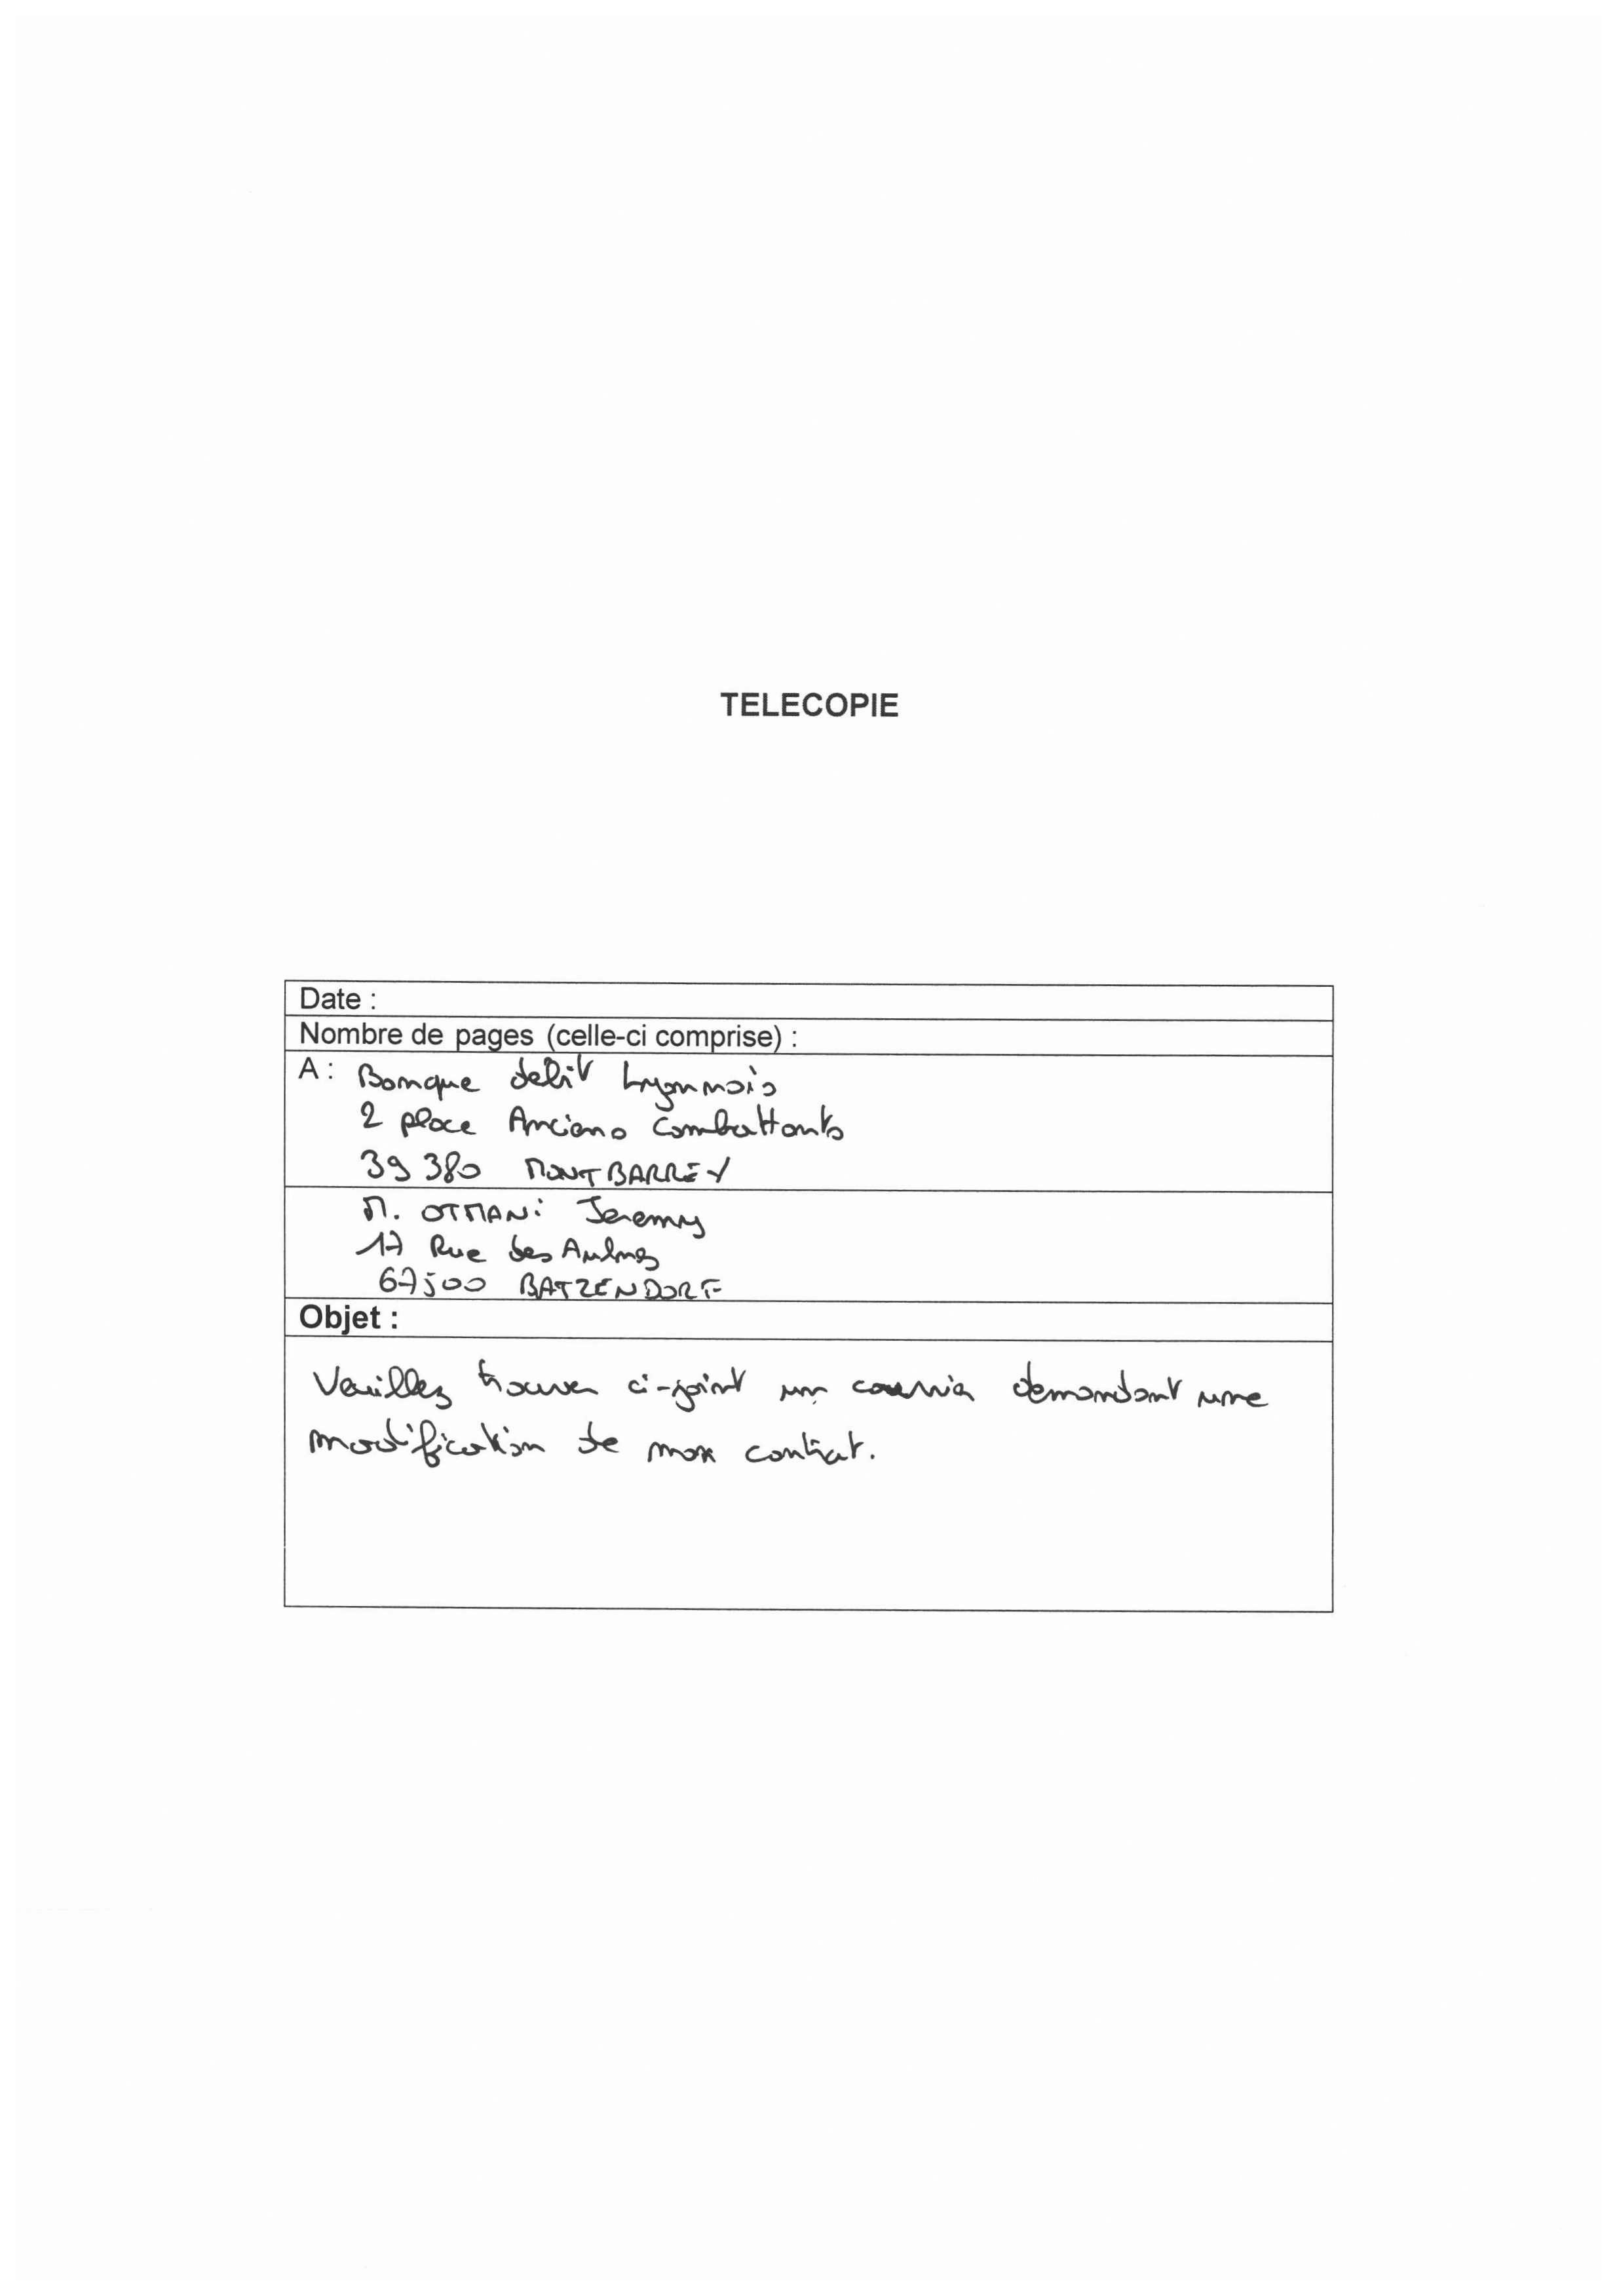 TELECOPIE
Date :
Nombre de pages (celle-ci comprise) :
A : Banque debit Lyonnois
2 place Anciens Combattants
39 380 MONTBARREY
M. OTMANi Jeremy
17 Rue des Aulnes
67500 BATZENDORF
Objet :
Veuillez trouver ci-joint un courrier demandant une
modification de mon contrat.